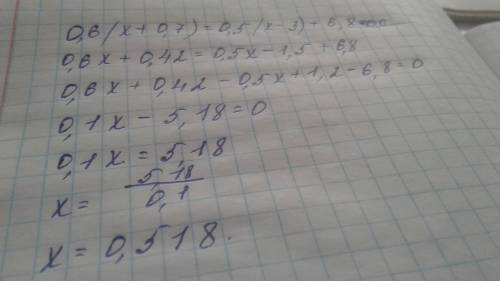 0,6(x+0,7)=0,5(x-3)+6,8
0,6x+0,42=0,5x-1,5+6,8
0,6x+0,42-0,5x+1,2-6,8=0
0,1x-5,18=0
0,1x=5,18
x= 5,18/0,1
x=0,518.